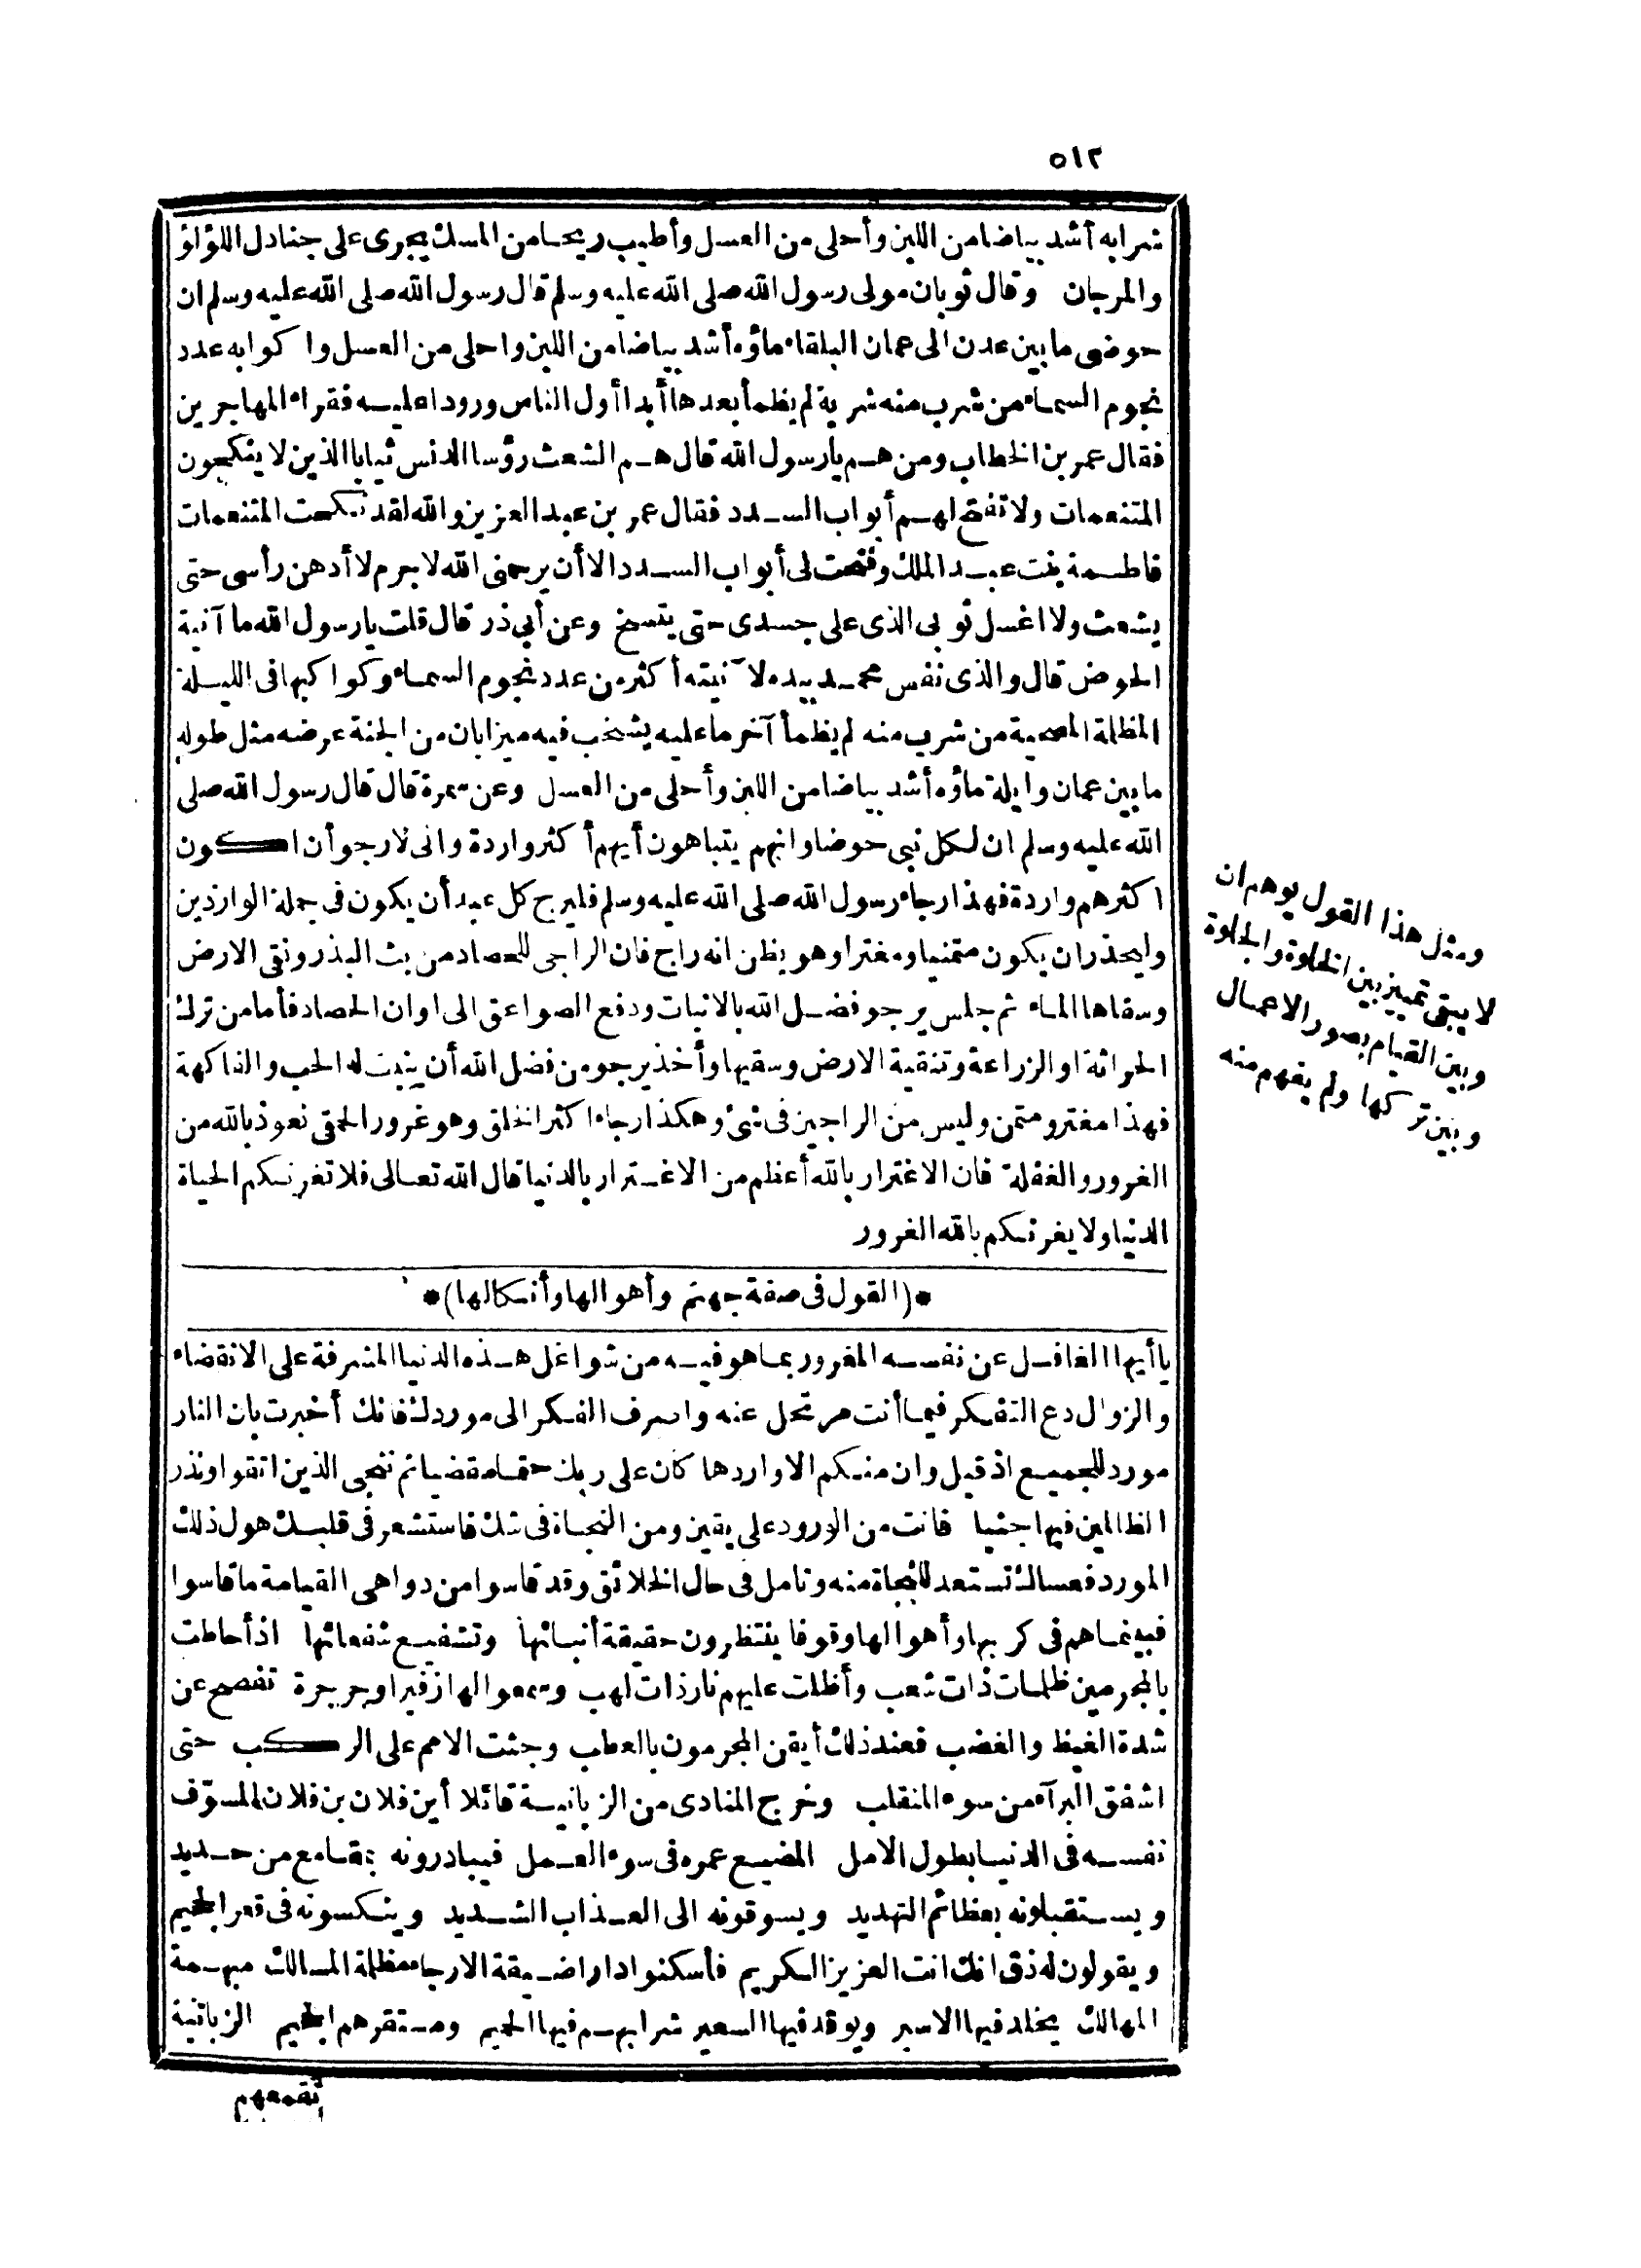 ٥١٢
شرابه أشد بياضا من اللبن وأحلى من العسل وأطيب ريحا من المسك يجرى على جنادل اللؤلؤ
والمرجان وقال ثوبان مولى رسول الله صلى الله عليه وسلم قال رسول الله صلى الله عليه وسلم ان
حوضى ما بين عدن الى عمان البلقاء ماؤه أشد بياضا من اللبن واحلى من العسل وا كوابه عدد
نجوم السماء من شرب منه شربة لم يظمأ بعدها أبدا أول الناس ورودا عليه فقراء المهاجرين
فقال عمر بن الخطاب ومن هم يا رسول الله قال هم الشعث رؤسا الدنس ثيابا الذين لا ينكحون
المتنعمات ولا تفتح لهم أبواب السدد فقال عمر بن عبد العزيز والله لقد نكحت المتنعمات
فاطمة بنت عبد الملك وفتحت لى أبواب السدد الا أن يرحمنى الله لا جرم لا أدهن رأسى حتى
يشعث ولا اغسل ثوبى الذى على جسدى حتى يتسخ وعن أبى ذر قال قلت يا رسول الله ما آنية
الحوض قال والذى نفس محمد بيده لآنيته أكثر من عدد نجوم السماء وكواكبها فى الليلة
المظلمة المصحية من شرب منه لم يظمأ آخر ما عليه يشخب فيه ميزابان من الجنة عرضه مثل طوله
ما بين عمان وايلة ماؤه أشد بياضا من اللبن وأحلى من العسل وعن سمرة قال قال رسول الله صلى
الله عليه وسلم ان لكل نبى حوضا وانهم يتباهون أيهم أكثر واردة وانى لارجو أن اكون
اكثرهم واردة فهذا رجاء رسول الله صلى الله عليه وسلم فليرج كل عبد أن يكون فى جملة الواردين
وليحذر ان يكون متمنيا ومغترا وهو يظن انه راج فان الراجى للحصاد من بث البذر ونقى الارض
وسقاها الماء ثم جلس يرجو فضل الله بالانبات ودفع الصواعق الى اوان الحصاد فأما من ترك
الحراثة او الزراعة وتنقية الارض وسقيها وأخذ يرجو من فضل الله أن ينبت له الحب والفاكهة
فهذا مغتر ومتمن وليس من الراجين فى شئ وهكذا رجاء اكثر الخلق وهو غرور الحمقى نعوذ بالله من
الغرور والغفلة فان الاغترار بالله أعظم من الاغترار بالدنيا قال الله تعالى فلا تغرنكم الحياة
الدنيا ولا يغرنكم بالله الغرور
*(القول فى صفة جهنم وأهوالها وأنكالها)*
يا أيها الغافل عن نفسه المغرور بما هو فيه من شواغل هذه الدنيا المشرفة على الانقضاء
والزوال دع التفكر فيما أنت مرتحل عنه واصرف الفكر الى موردك فانك أخبرت بان النار
مورد للجميع اذ قيل وان منكم الا واردها كان على ربك حتما مقضيا ثم ننجى الذين اتقوا ونذر
الظالمين فيها جثيا فانت من الورود على يقين ومن النجاة فى شك فاستشعر فى قلبك هول ذلك
المورد فعساك تستعد للنجاة منه وتامل فى حال الخلائق وقد قاسوا من دواهى القيامة ما قاسوا
فبينما هم فى كربها وأهوالها وقوفا ينتظرون حقيقة أنبائها وتشفيع شفعائها اذ أحاطت
بالمجرمين ظلمات ذات شعب وأظلت عليهم نار ذات لهب وسمعوا لها زفيرا وجرجرة تفصح عن
شدة الغيظ والغضب فعند ذلك أيقن المجرمون بالعطب وجثت الامم على الركب حتى
اشفق البرآء من سوء المنقلب وخرج المنادى من الزبانية قائلا أين فلان بن فلان المسوّف
نفسه فى الدنيا بطول الامل المضيع عمره فى سوء العمل فيبادرونه بمقامع من حديد
ويستقبلونه بعظائم التهديد ويسوقونه الى العذاب الشديد وينكسونه فى قعر الجحيم
ويقولون له ذق انك انت العزيز الكريم فأسكنوا دارا ضيقة الارجاء مظلمة المسالك مبهمة
المهالك يخلد فيها الاسير ويوقد فيها السعير شرابهم فيها الحميم ومستقرهم الجحيم الزبانية
تقمعهم
ومثل هذا القول يوهم ان
لا يبقى تمييز بين الخلوة والجلوة
وبين القيام بصور الاعمال
وبين تركها ولم يفهم منه